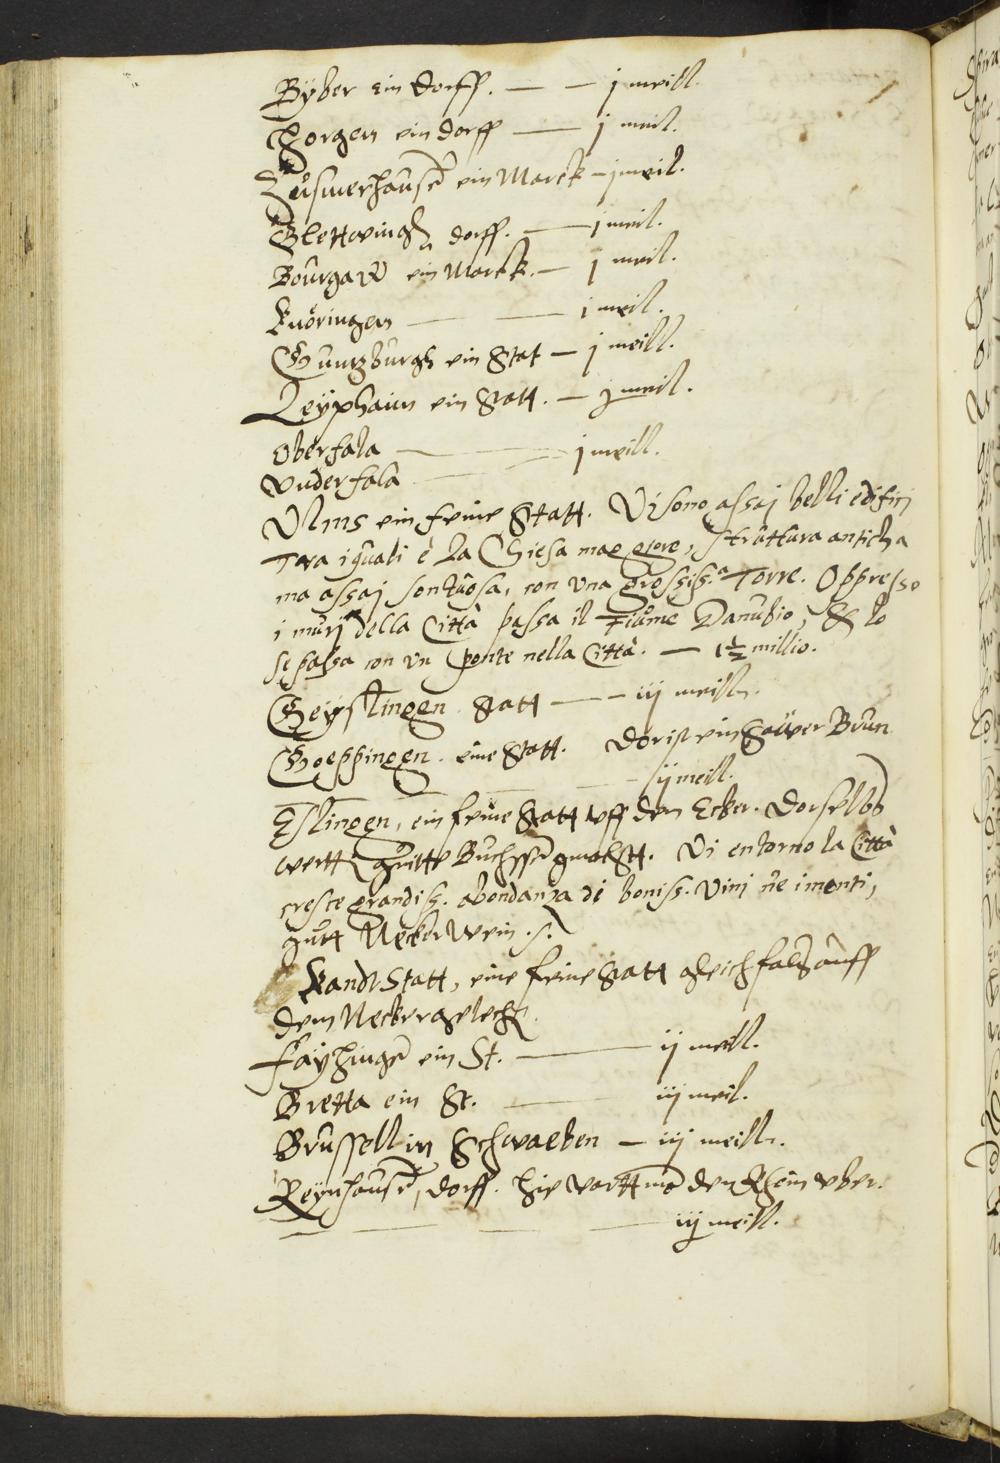 Byber ein dorff. — — j meill.
Horgen ein dorff — j meil.
Züsmerhausē ein Marck — j meil.
Glettwingh dorff. — j meil.
Bourgaw ein Marck. — j meil.
Knöringen — — j meil.
Guntzburgh ein Stat — j meill.
Leyphaim ein Statt. — j meil.
Oberfala — — j meill.
Vnderfala
Vlms ein feine Statt. Vi sono assaj belli edifirj
Tra iquali è la Chiesa maggiore, struttura anticha
ma assaj sontuosa, con vna grossiss.ᵃ Torre. Oppresso
i murj della Città passa il Fiume Danubio, & lo
se passa con vn ponte nella Città. — 1½ millio.
Geyslingen Statt — — iij meilln.
Goeppingen. eine Statt. dorist ein Sauer Brun
— — — ij meill.
Eslingen, ein feine Statt vff dem Ecker. Dorselbs
wertt gutte Buchssē gmacht. Vi entorno la Città
cresce grandiss. abondanza di boniss. vinj nē i monti,
gutt Necker wein .s.
KandtStatt, eine feine Statt gleichfals auff
dem Necker gelech.
Fayhingē ein St. — ij meill.
Bretta ein St. — iij meil.
Brussell in Schwaeben — iij meilln.
Reynhausē, dorff. hie vartt mā den Rhein vber.
— — — iij meill.